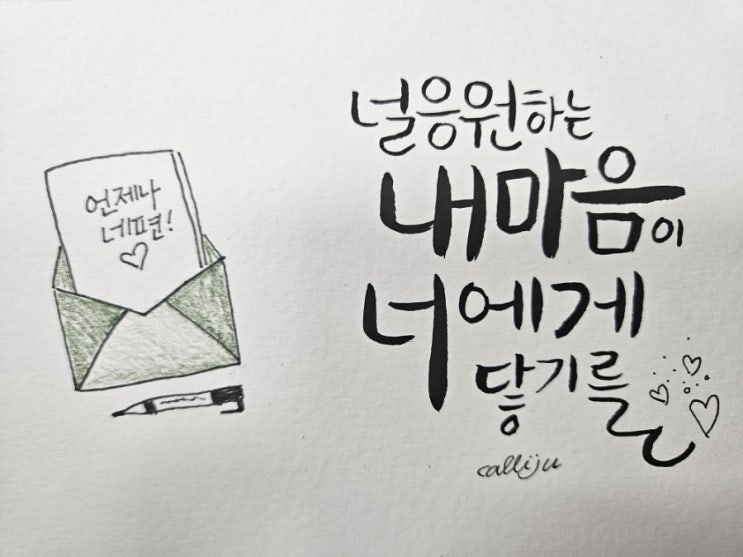 언제나
네편!
널응원하는
내마음이
너에게
닿기를
calliju